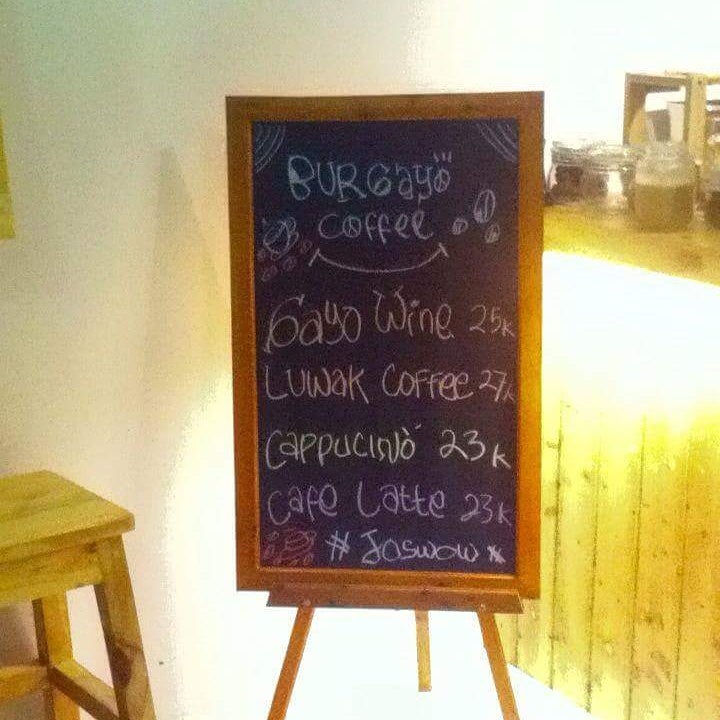 BURGayo
coffee
Gayo Wine 25k
LUWAK COFFEE 27k
CAPPUCINO 23k
Cafe Latte 23k
# Joswow